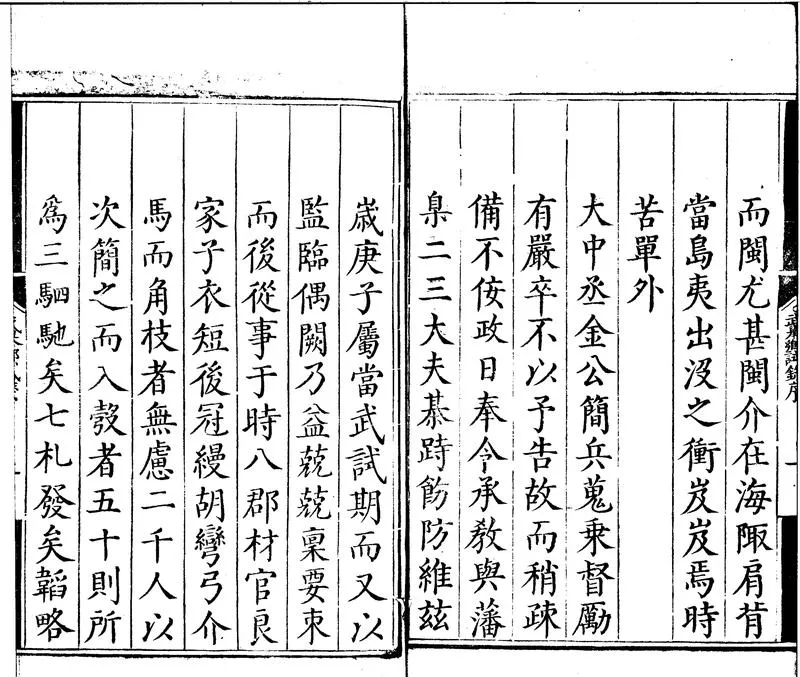 而閩尤甚閩介在海陬肩背
當島夷出沒之衝岌岌焉時
苦單外
大中丞金公簡兵蒐乗督勵
有嚴卒不以予告故而稍疎
備不佞政日奉令承教與藩
臬二三大夫綦跱飭防維茲
歲庚子屬當武試期而又以
監臨偶闕乃益兢兢稟要束
而後從事于時八郡材官良
家子衣短後冠縵胡彎弓介
馬而角枝者無慮二千人以
次簡之而入彀者五十則所
爲三駟馳矣七札發矣韜略